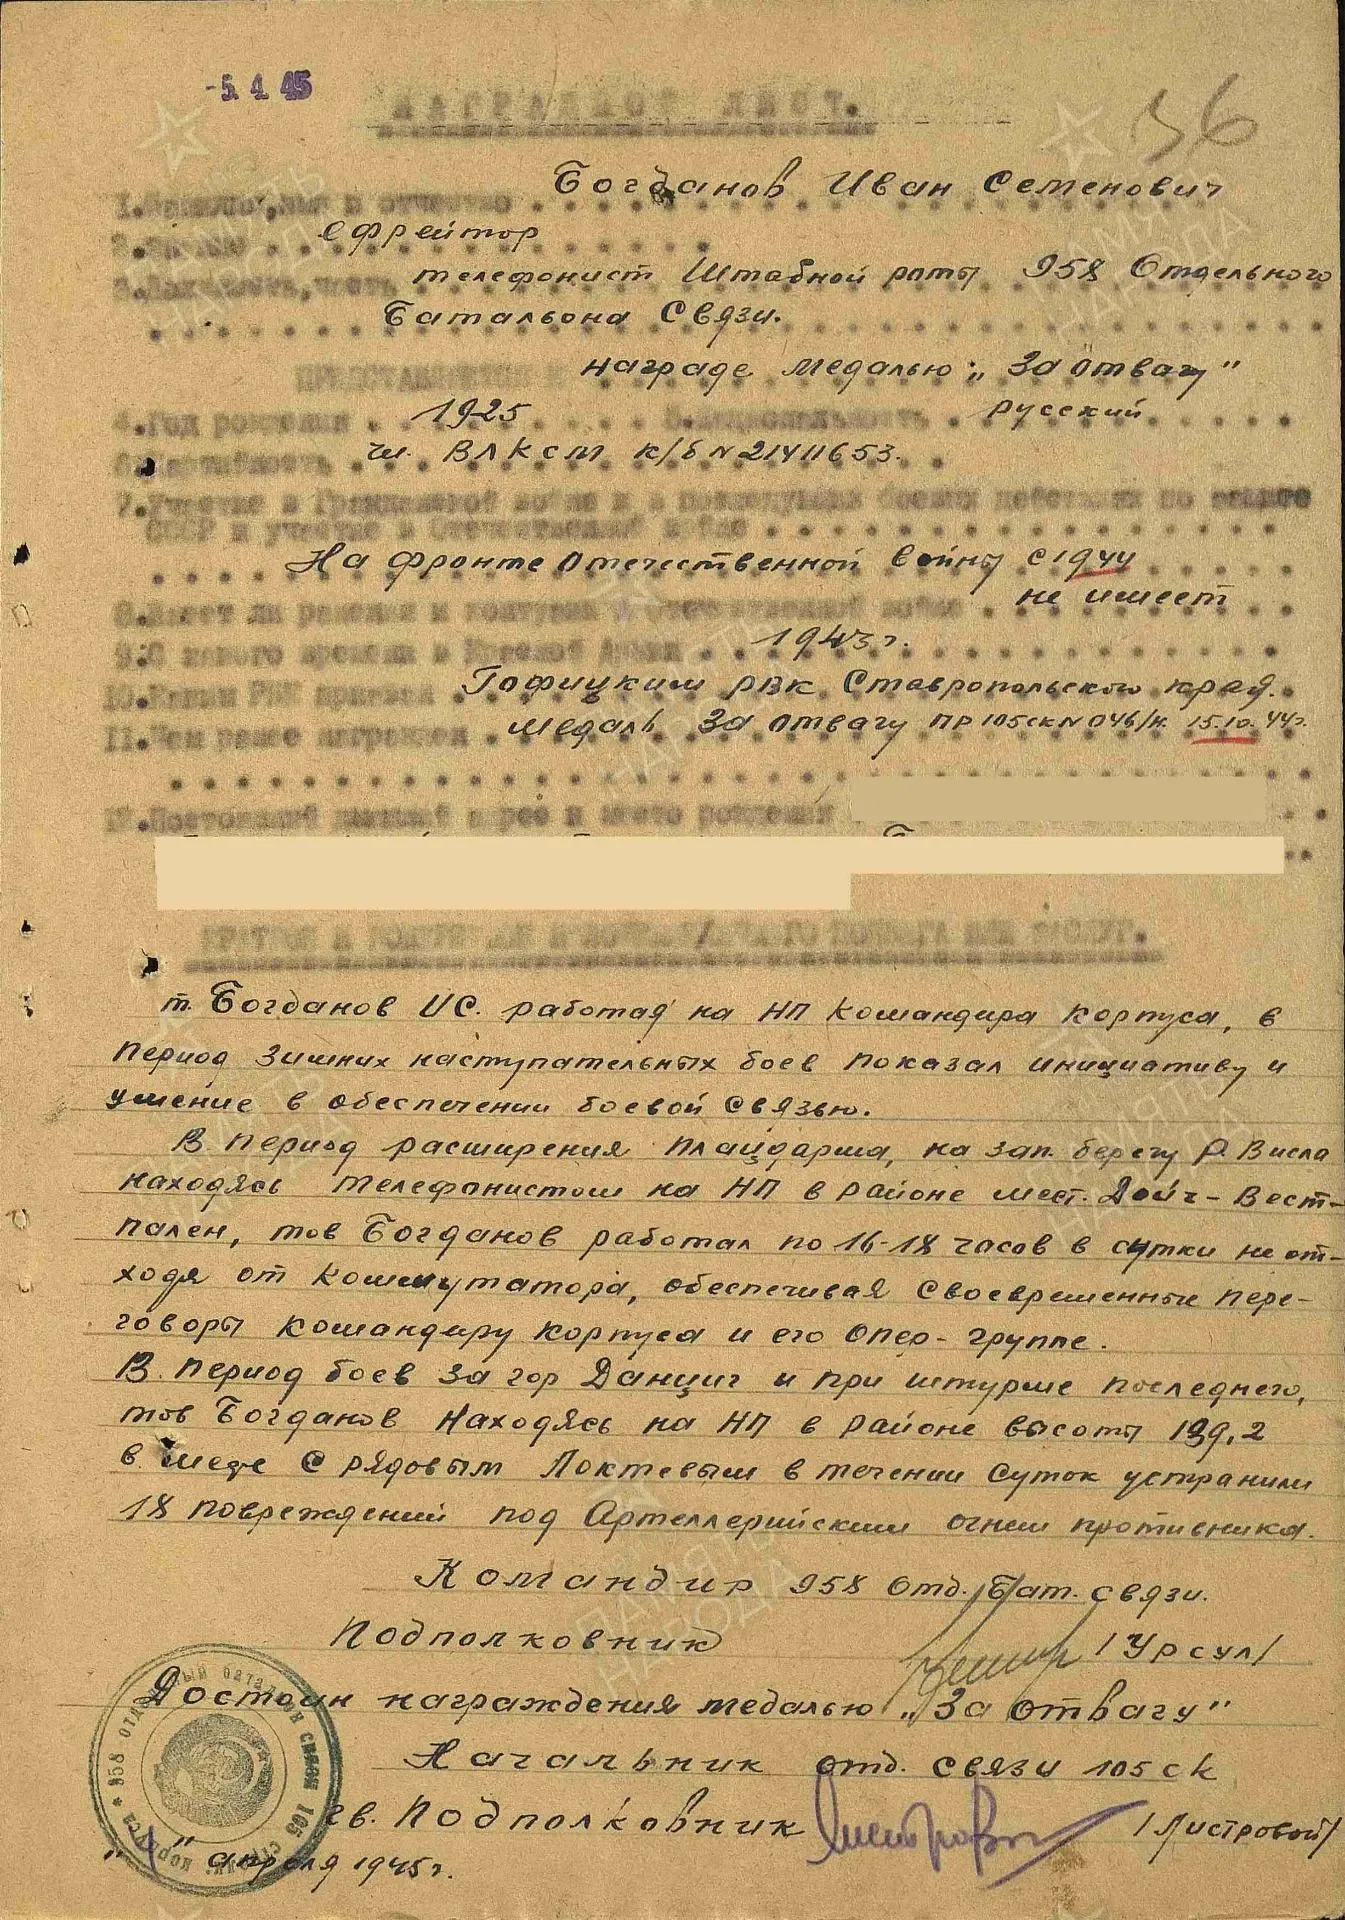 -5.4.45
НАГРАДНОЙ ЛИСТ.
36
Богданов Иван Семенович
1.Фамилия, имя и отчество
ефрейтор
2.Звание
телефонист Штабной роты 958 Отдельного
3.Должность, часть
Батальона Связи.
ПРЕДСТАВЛЯЕТСЯ К награде медалью: „За отвагу"
4.Год рождения 1925 5.Национальность русский
6.Партийность чл. ВЛКСМ к/б N 21411653.
7.Участие в Гражданской войне и в последующих боевых действиях по защите
СССР и участие в Отечественной войне
На фронте Отечественной войны с 1944
8.Имеет ли ранения и контузии в Отечественной войне не имеет
9.С какого времени в Красной Армии 1943 г.
10.Каким РВК призван Гофицким РВК Ставропольского края.
11.Чем ранее награжден медаль За отвагу ПР 105 СК N 046/н. 15.10.44г.
12.Постоянный домашний адрес и место рождения
т. Богданов И С. работая на НП командира корпуса, в
период зимних наступательных боев показал инициативу и
умение в обеспечении боевой связью.
В период расширения плацдарма, на зап. берегу р. Висла
находясь телефонистом на НП в районе мест. Дойч-Вест-
пален, тов Богданов работал по 16-18 часов в сутки не от-
ходя от коммутатора, обеспечивая своевременные пере-
говоры командиру корпуса и его опер-группе.
В период боев за гор Данциг и при штурме последнего,
тов Богданов находясь на НП в районе высоты 139,2
в месте с рядовым Локтевым в течении суток устранили
18 повреждений под Артеллерийским огнем противника.
Командир 958 отд. бат. связи.
Подполковник /Урсул/
Достоин награждения медалью „За отвагу"
Начальник отд. связи 105 ск
гв. Подполковник /Листровой/
апреля 1945 г.
* 958 отдельный батальон связи 105 стрелк. корпуса
ПАМЯТЬ НАРОДА